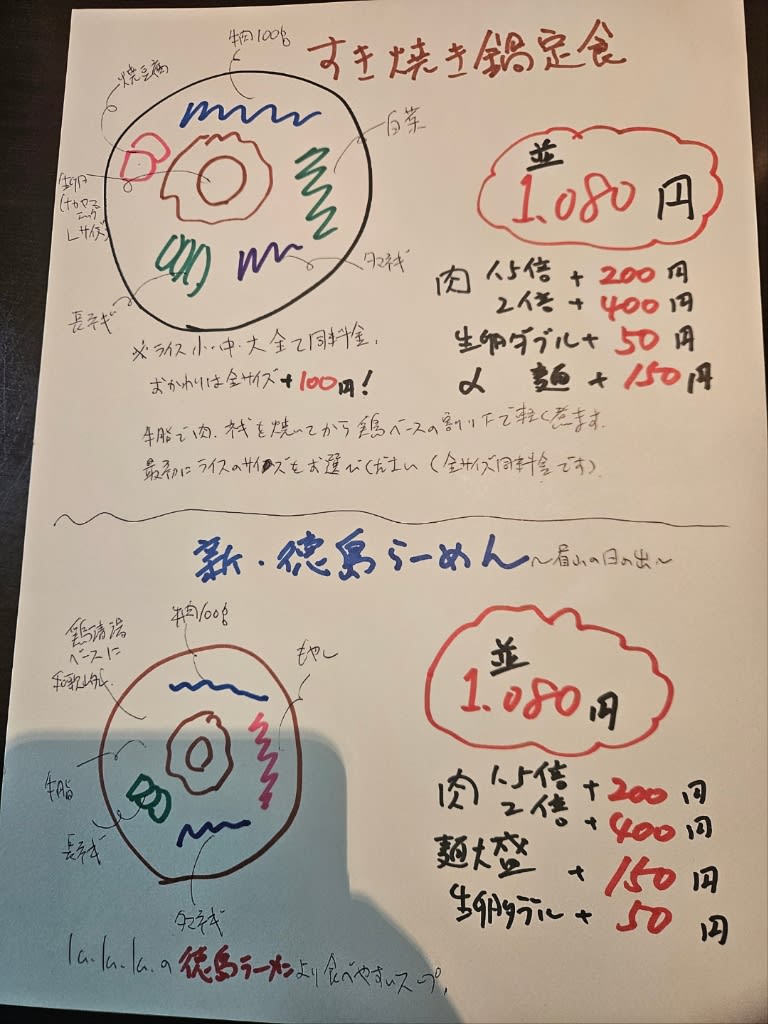 すき焼き鍋定食
牛肉100g
焼豆腐
白菜
生卵
Lサイズ)
タマネギ
長ネギ
並
1.080円
肉 1.5倍 + 200円
2倍 + 400円
生卵ダブル + 50円
麺 + 150円
※ライス小・中・大全て同料金。
おかわりは全サイズ+100円!
牛脂で肉、ネギを焼いてから鶏ベースの割り下で軽く煮ます。
最初にライスのサイズをお選びください(全サイズ同料金です)
新・徳島らーめん ～眉山の日の出～
牛肉100g
鶏清湯
ベースに
もやし
牛脂
長ネギ
タマネギ
並
1.080円
肉 1.5倍 + 200円
2倍 + 400円
麺大盛 + 150円
生卵ダブル + 50円
la.la.la.の徳島ラーメンより食べやすいスープ。